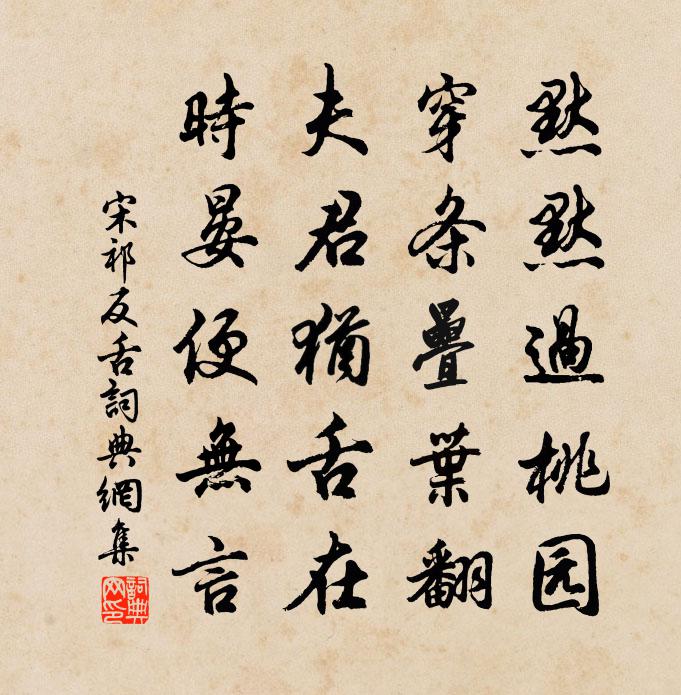 黙黙過桃园
穿条疊葉翻
夫君猶舌在
時晏便無言
宋祁反舌詞典網集
詞典网印